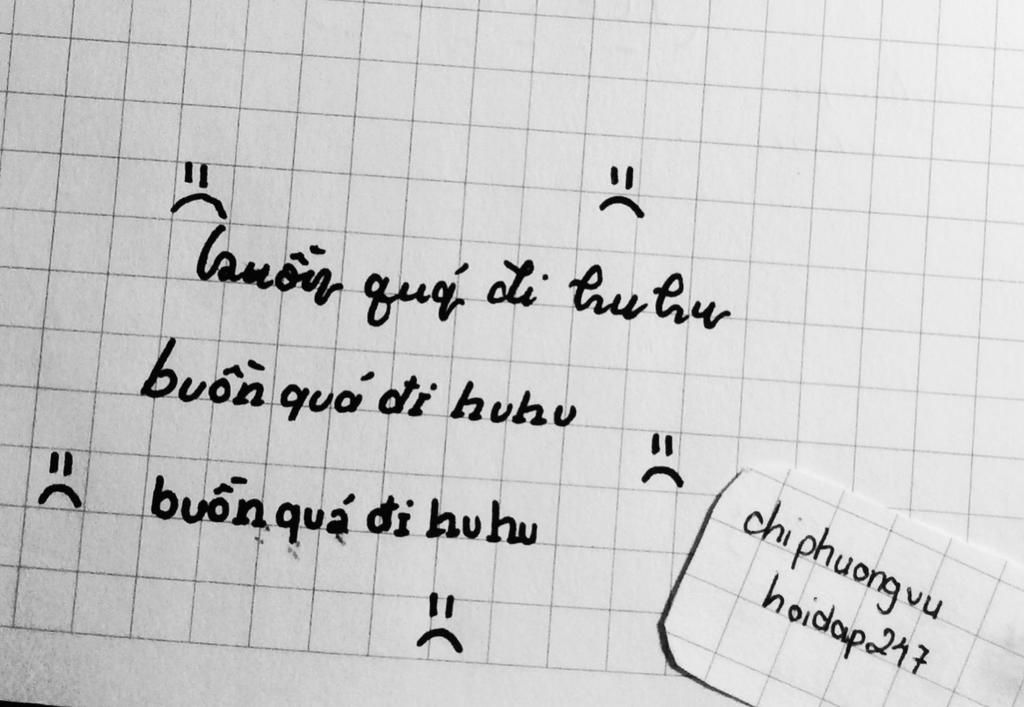 buồn quá đi huhu
buồn quá đi huhu
buồn quá đi huhu
chiphuongvu
hoidap247